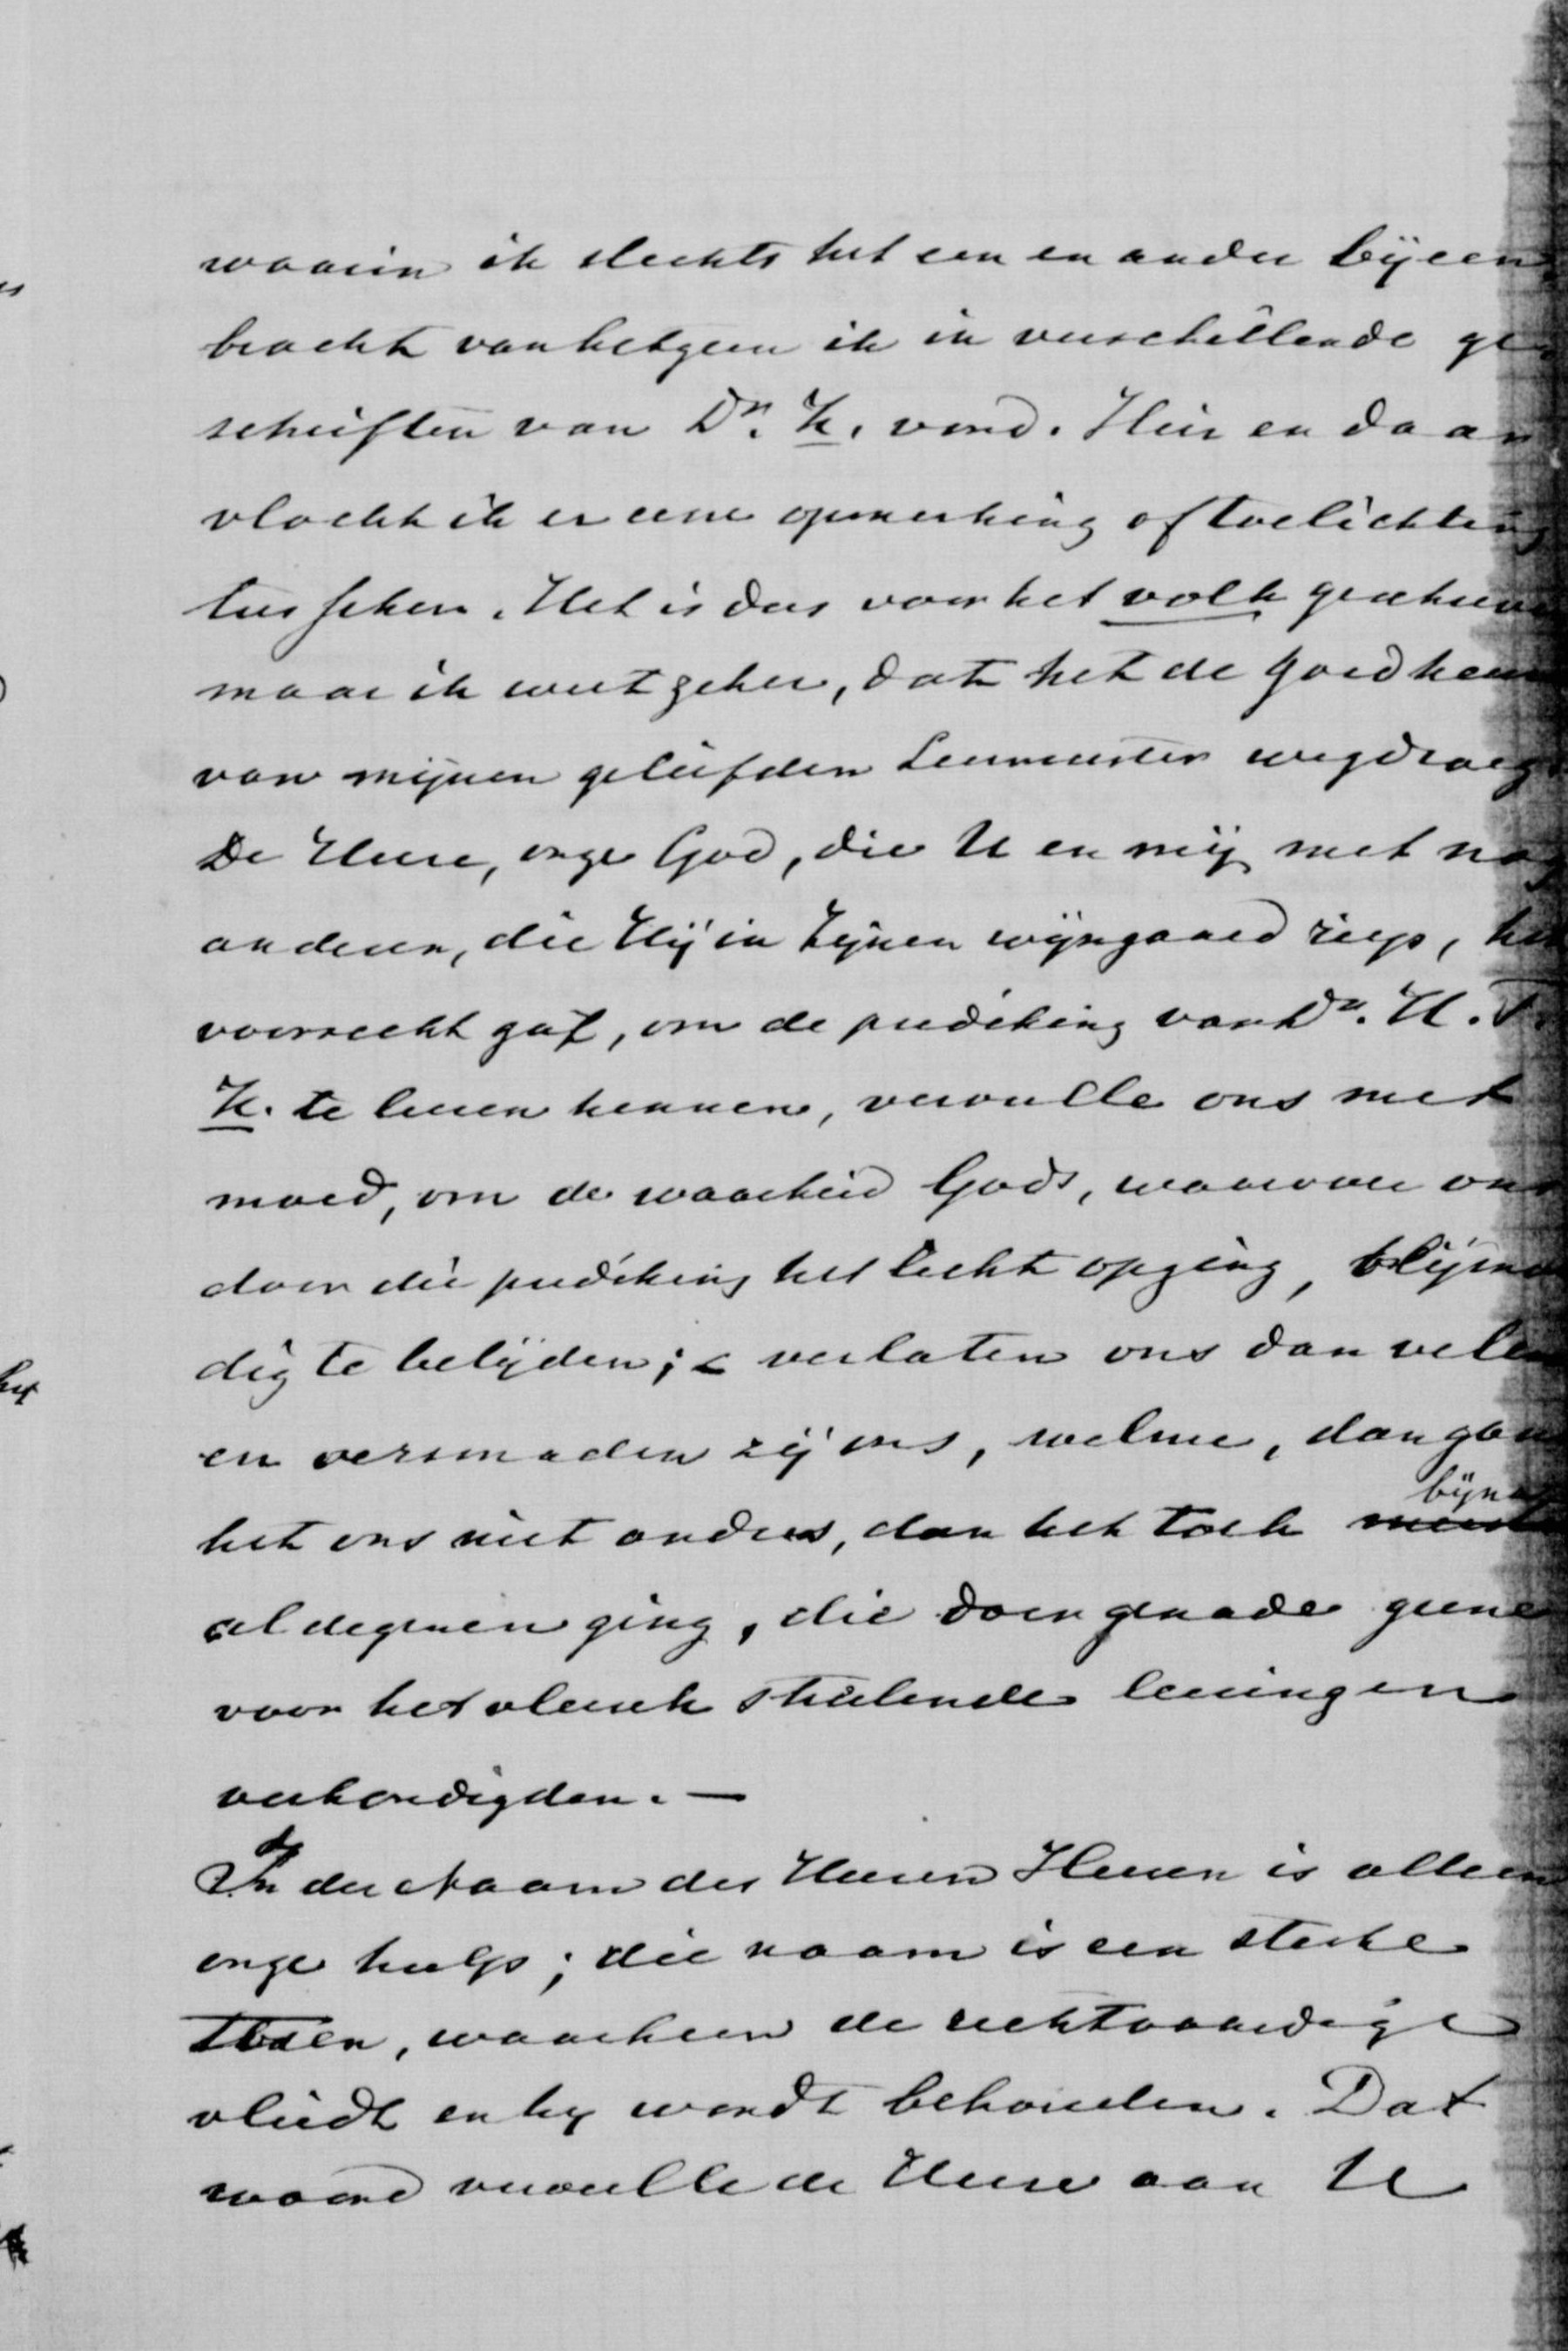 waarin ik slechts het een en ander bijeen
bracht van hetgeen ik in verschillende ge
schriften van Dr. K. vond. Hier en daar
vlocht ik er eene opmerking of toelichting
tusschen. Het is dus voor het volk geschreven
maar ik weet zeker, dat het de goedkeu
van mijnen geliefden Leermeester wegdraag
De Heere, onze God, die U en mij met nog
anderen, die Hij in Zijnen wijngaard riep, het
voorrecht gaf, om de prediking van Dr. H. F.
K. te leeren kennen, vervulle ons met
moed, om de waarheid Gods, waarover ons
door die prediking het licht opging, blijmoe
dig te belijden; verlaten ons dan velen
en versmaden zij ons, welnu, dan gaat
het ons niet anders, dan het toch meest
bijna
al degenen ging, die door genade geene
voor het vleesch streelende leeringen
verkondigden. —
In den Naam des Heeren Heeren is alleen
onze hulp; die naam is een sterke
toren, waarheen de rechtvaardige
vliedt en hij wordt behouden. Dat
woord vervulle de Heere aan U